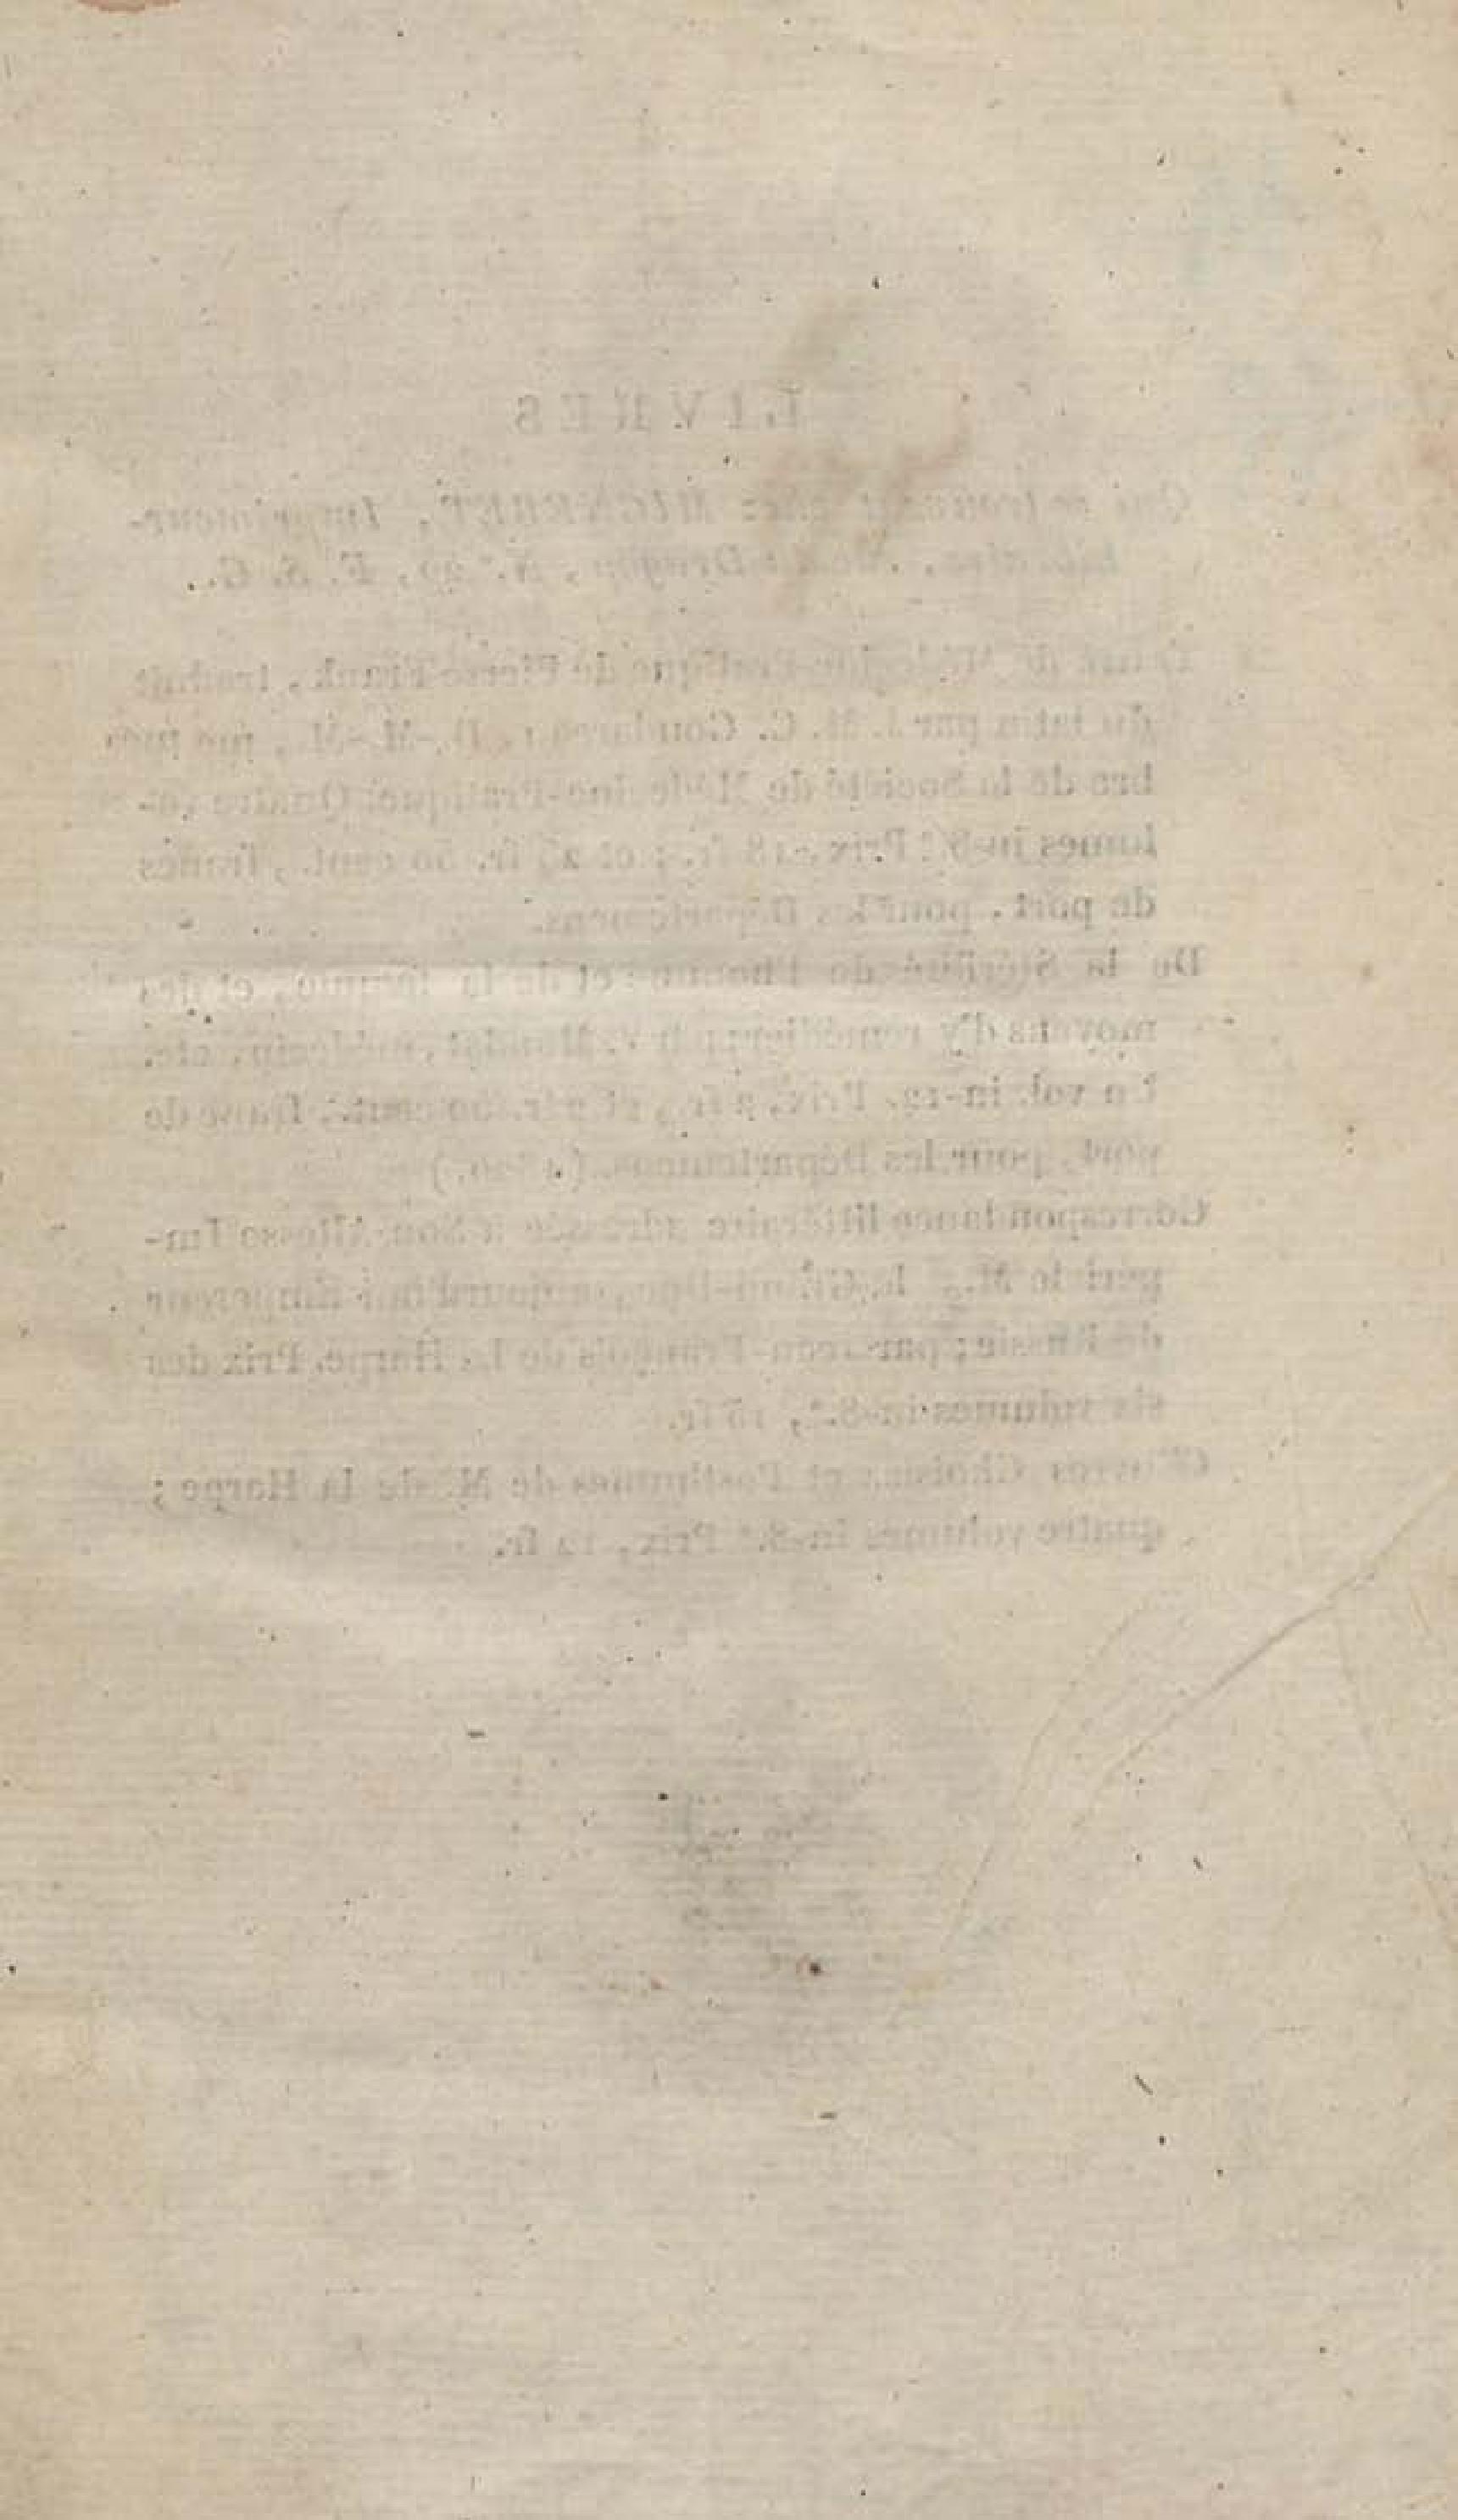 LIVRES
Qui se trouvent chez MIGNERET, Imprimeur-
Libraire, Dragon, N.º 20, F. S. G.
Traité de Médecine-Pratique de Pierre Frank, traduit
du latin par J. M. C. Goudareau, D.-M.-M.,
bre de la Société de Médecine-Pratique. Quatre vo-
lumes in-8.º Prix, 18 fr.; et 25 fr. 50 cent., francs
de port, pour les Départemens.
De la Stérilité de l'homme et de la femme, et des
moyens d'y remédier; V. Mondat, médecin, etc.
Un vol. in-12. Prix, 2 fr., et 2 fr. 60 cent., franc de
port, pour les Départemens.
Correspondance littéraire adressée à Son Altesse Im-
périale M.gr le Grand-Duc, aujourd'hui Empereur
de Russie; par Jean-François de La Harpe. Prix des
six volumes in-8.º, 15 fr.
Œuvres Choisies et Posthumes de M. de la Harpe;
quatre volumes in-8.º Prix, 12 fr.